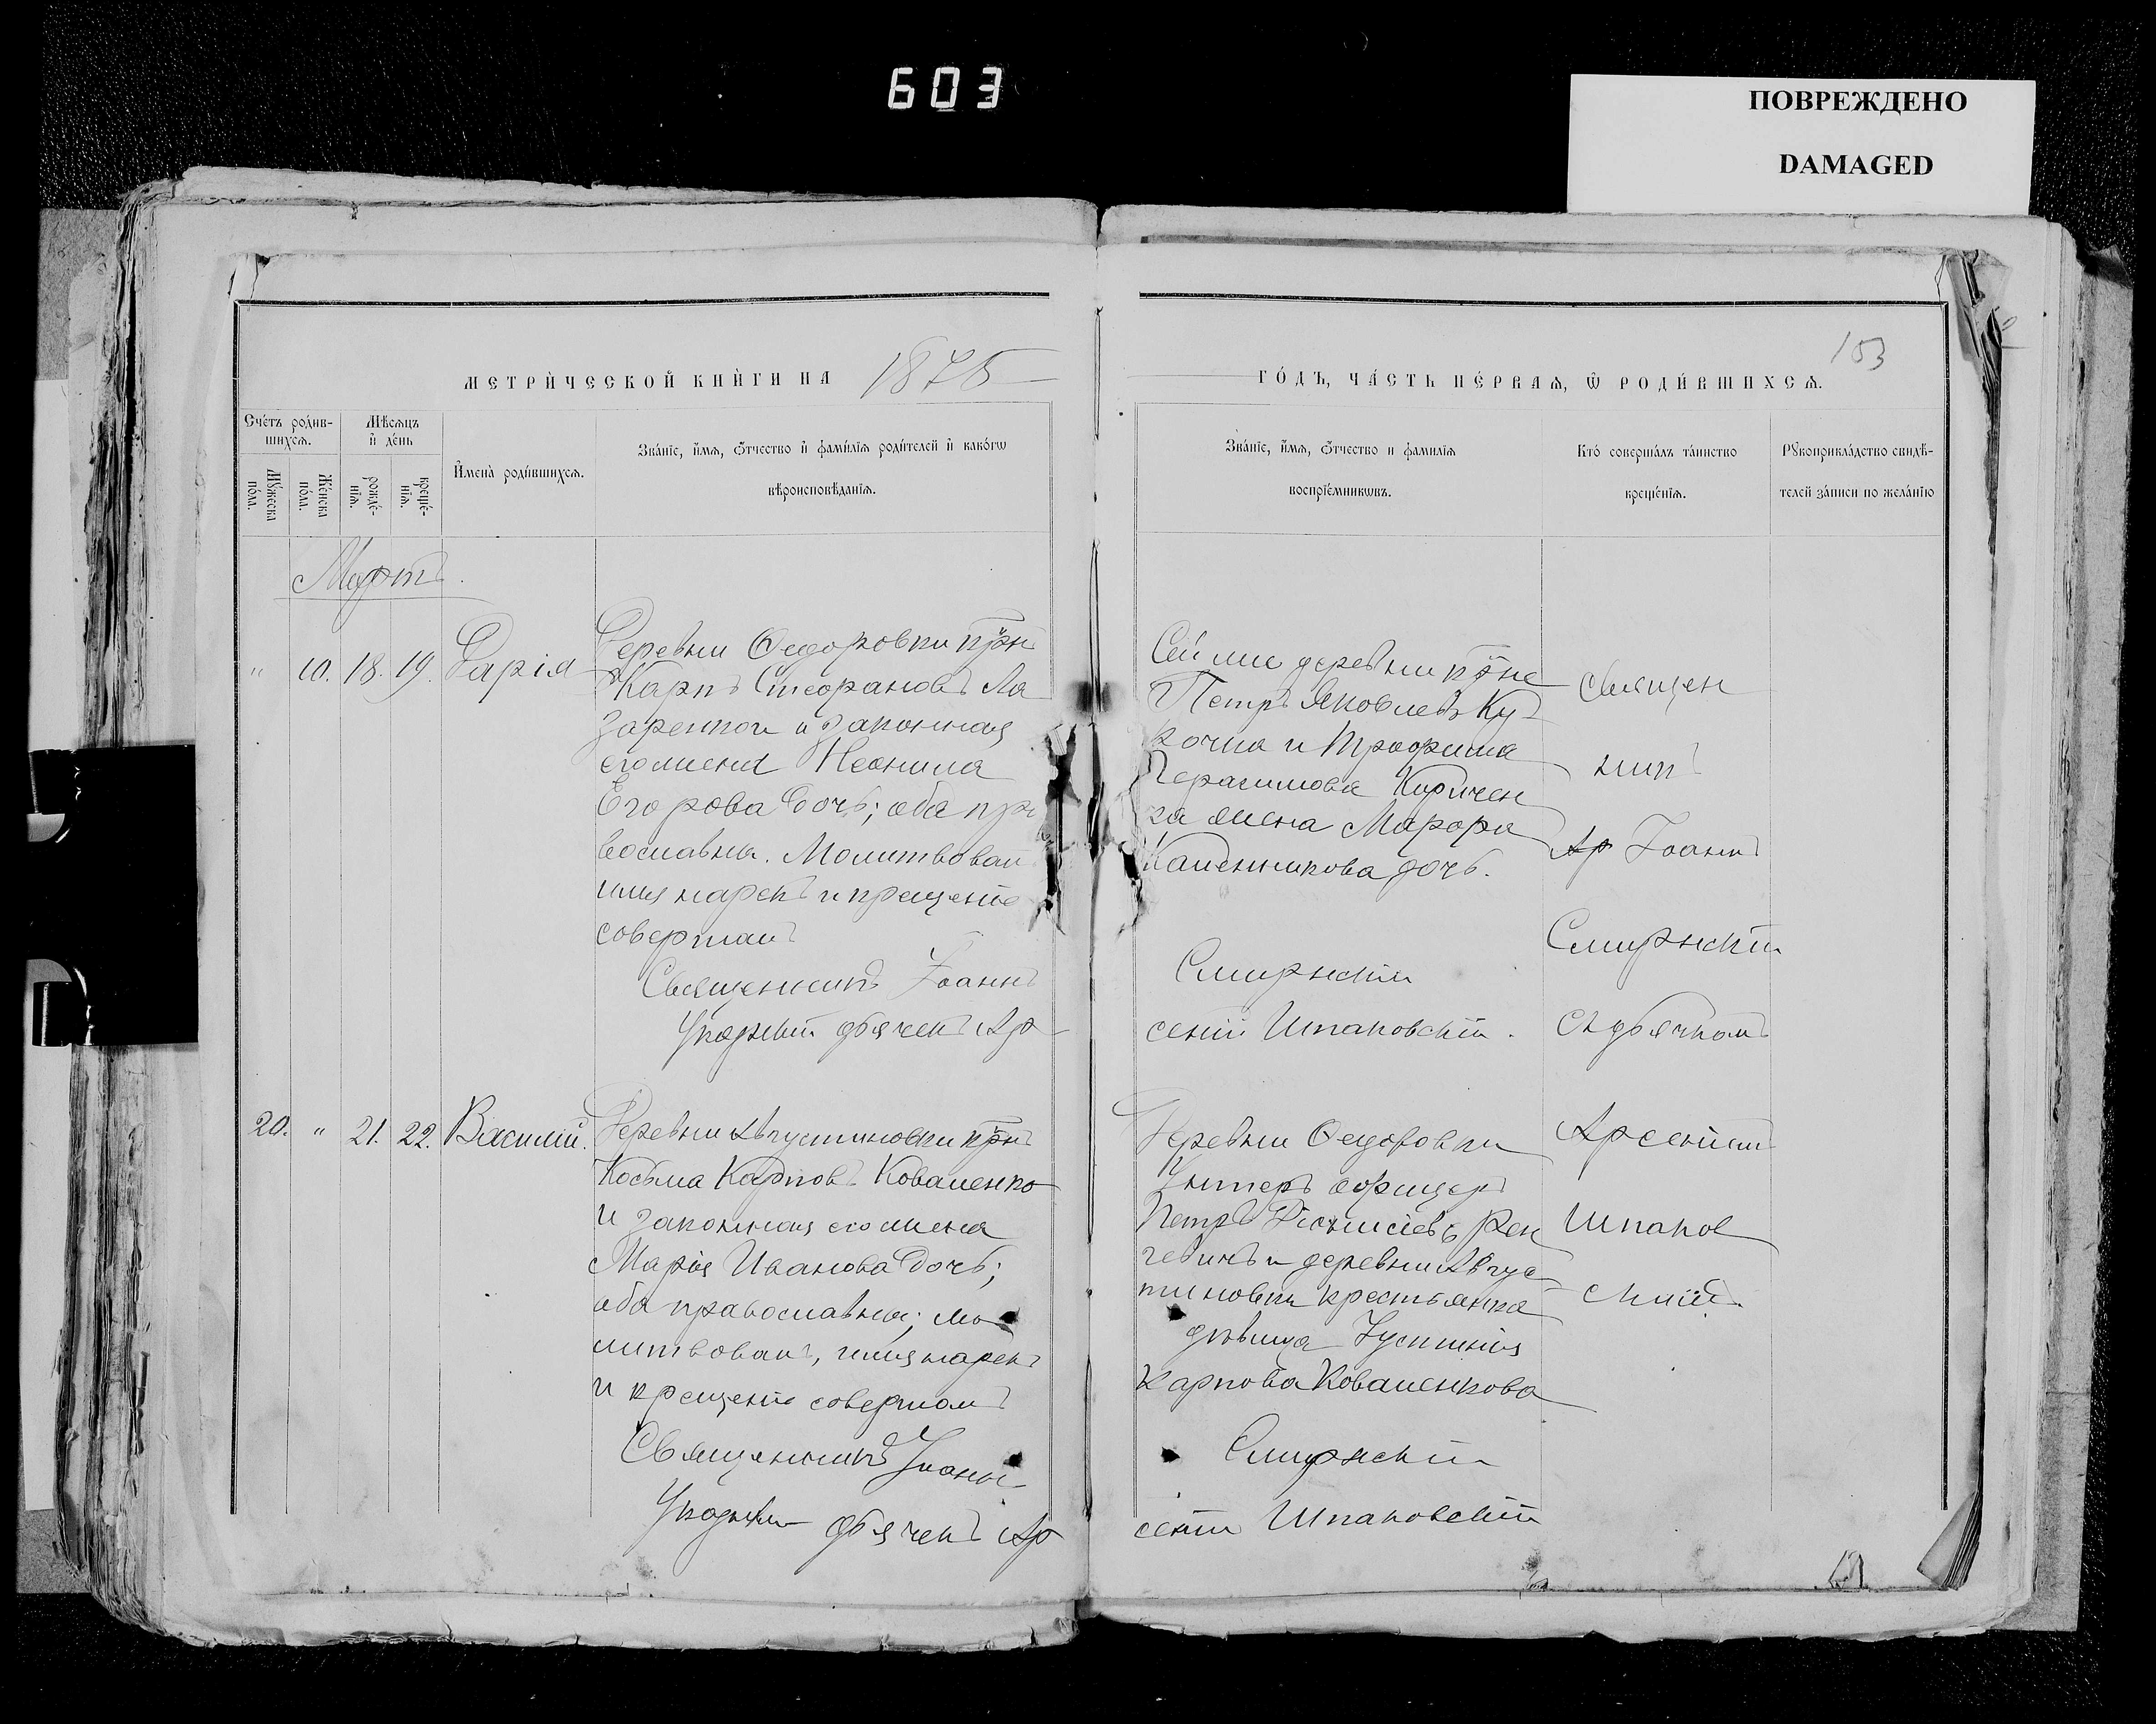 603
ПОВРЕЖДЕНО
DAMAGED
153
МЕТРИ́ЧЕСКОЙ КНИ́ГИ НА 1875
ГО́ДЪ, ЧА́СТЬ ПЕ́РВАѦ, Ѡ РОДИ́ВШИХСѦ.
Сче́тъ роди́в-
шихсѧ.
Мꙋ́жеска по́ла.
Же́нска по́ла.
Мѣ́сѧцъ
и҆ де́нь
рожде́-
нїѧ.
креще́-
нїѧ.
И҆мена̀ роди́вшихсѧ.
Зва́нїе, и҆́мѧ, ѻ҆́тчество и҆ фами́лїѧ роди́телей и҆ како́гѡ
вѣроисповѣ́данїѧ.
Зва́нїе, и҆́мѧ, ѻ҆́тчество и фамилїѧ
воспрїе́мникѡвъ.
Кто́ соверша́лъ та́инство
креще́нїѧ.
Рꙋкоприкла́дство свидѣ́-
телей за́писи по жела́нїю
Мартъ
" 10. 18. 19. Дарія
Деревни Ѳедоровки крн
Карпъ Стефановъ Ла
заренко и законная
его жена Неонила
Егорова дочь; оба пра
вославны. Молитвовал
имя нарекъ и крещеніе
совершалъ
Священникъ Іоаннъ
дьячекъ Ар
Сей же деревни крне
Петръ Яковлевъ Ку
рочка и Трофима
Герасимова
га жена Марфа
Каленникова дочь.
Смирнскій
сеній Шпаковскій.
Священ
никъ
Ар Іоаннъ
Смирнскій
съ дьячкомъ
Арсеніемъ
Шпаков
скимъ.
20. " 21. 22. Василій.
Деревни Августиновки крнъ
Косьма Карповъ Коваленко
и законная его жена
Марія Иванова дочь;
оба православны; мо
литвовалъ, имя нарекъ
и крещеніе совершалъ
Священникъ Іоаннъ
дьячекъ Ар
Деревни Ѳедоровки
Унтеръ офицеръ
Петръ Діонисіевъ Рен
и деревни Авгус
тиновки крестьянка
дѣвица Іустинія
Карпова Коваленкова
Смирнскій
сеній Шпаковскій